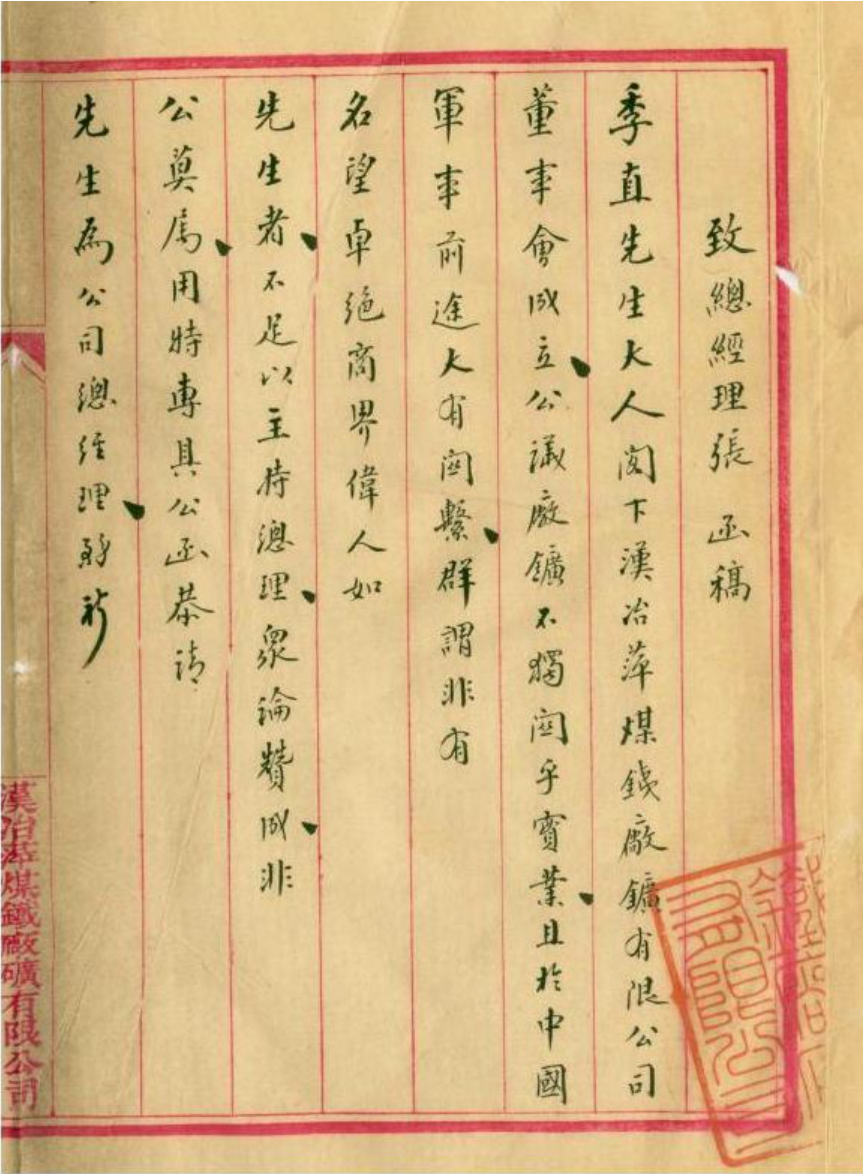 致總經理張 函稿
季直先生大人閣下漢冶萍煤鐵廠鑛有限公司
董事會成立公議廠鑛不獨關乎實業且於中國
軍事前途大有關繫群謂非有
名望卓絕商界偉人如
先生者不足以主持總理衆論贊成非
公莫屬用特專具公函恭請
先生為公司總經理務祈
漢冶萍煤鐵廠礦有限公司